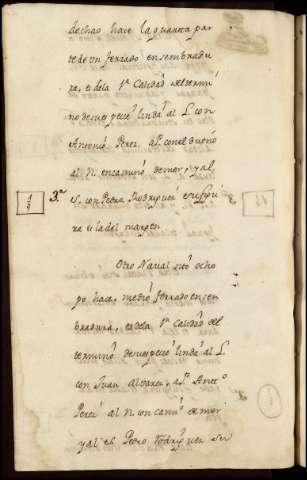 dechao hace la quarta par
te de un ferrado en sembradu
ra, es de la 1ª Calidad del termi
no de su especie linda al L. con
Antonio Perez al P. con el dueño
al N. en camino de mor, y al
S. con Pedro Rodriguez su figu
ra es la del margen
Otro Naval sito ocho
po hace medio ferrado en sem
bradura, es de la 1ª Calidad del
termino de su especie linda al L.
con Juan Alvarez, al P. Anto
Perez al N. con camo de mor
y al S. Pedro Rodriguez su